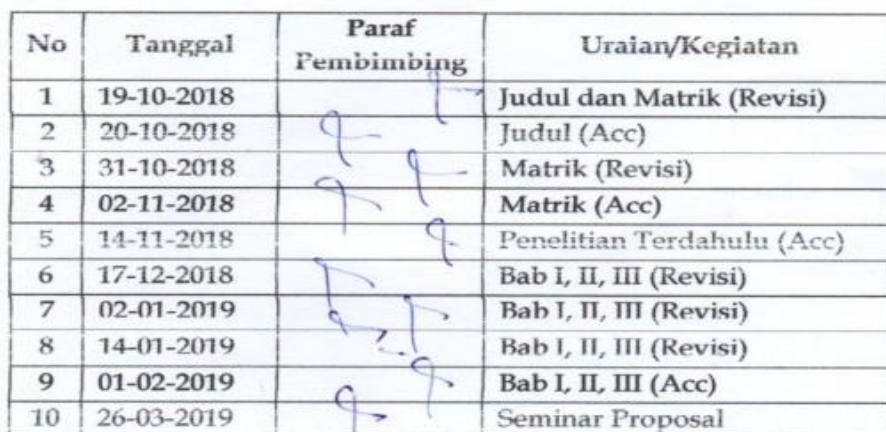 No Tanggal Paraf Pembimbing Uraian/Kegiatan
1 19-10-2018 Judul dan Matrik (Revisi)
2 20-10-2018 Judul (Acc)
3 31-10-2018 Matrik (Revisi)
4 02-11-2018 Matrik (Acc)
5 14-11-2018 Penelitian Terdahulu (Acc)
6 17-12-2018 Bab I, II, III (Revisi)
7 02-01-2019 Bab I, II, III (Revisi)
8 14-01-2019 Bab I, II, III (Revisi)
9 01-02-2019 Bab I, II, III (Acc)
10 26-03-2019 Seminar Proposal